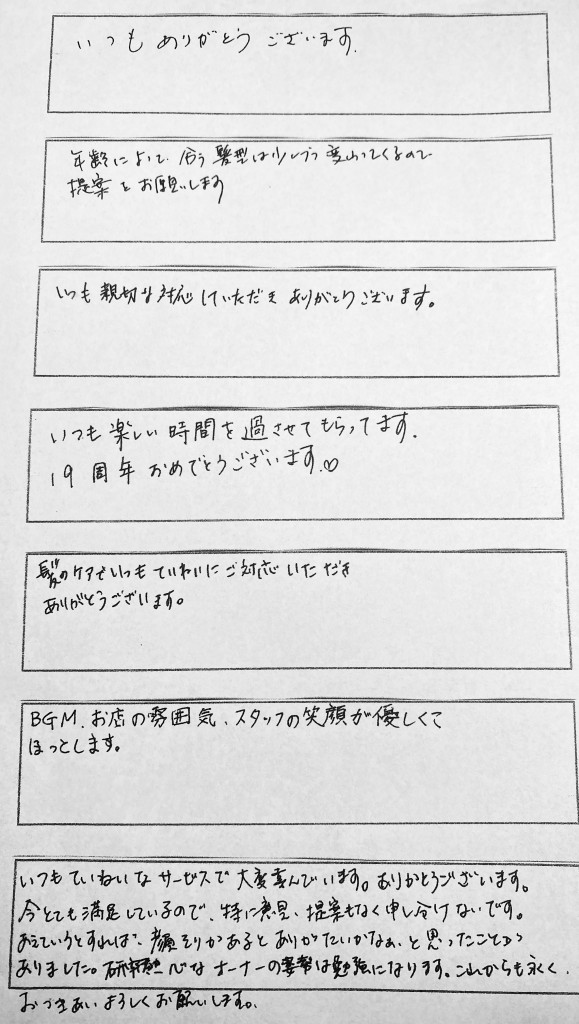 いつも ありがとう ございます.
年齢によって、合う 髪型は少しづつ 変わってくるので
提案を お願いします
いつも 親切な対応していただき ありがとうございます。
いつも 楽しい 時間を 過させて もらってます.
19 周年 おめでとうございます.♡
髪のケアでいつも ていねいに ご対応 いただき
ありがとうございます。
BGM、お店の雰囲気、スタッフの笑顔が優しくて
ほっとします。
いつもていねいな サービスで 大変喜んでいます。ありがとうございます。
今とても満足しているので、特に意見、提案もなく申し分けないです。
あえていうとすれば、顔そりがあるとありがたいかなぁ、と思ったことが
ありました。研究熱心なオーナーの姿勢は勉強になります。これからも永く、
おつきあい よろしく お願いします。